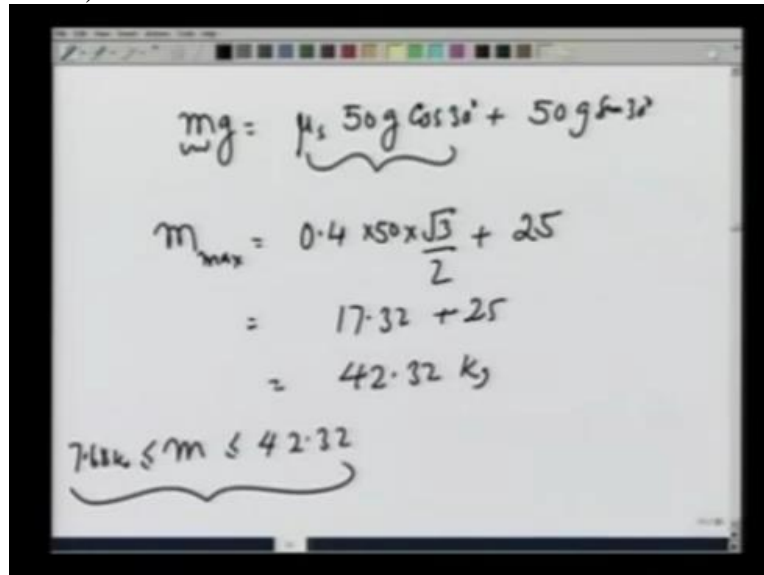 mg = μs 50g Cos 30° + 50g Sin 30°
m max = 0.4 x50x √3/2 + 25
= 17.32 + 25
= 42.32 kg
7.68kg ≤ m ≤ 42.32